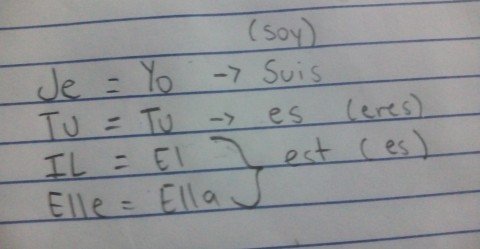 (soy)
Je = Yo -> Suis
TU = TU -> es (eres)
IL = El
est (es)
Elle = Ella